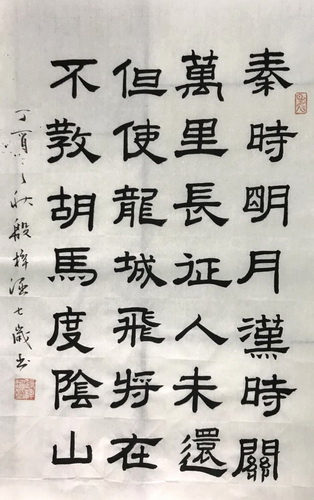 秦時明月漢時關
萬里長征人未還
但使龍城飛將在
不教胡馬度陰山
丁酉之秋殷梓涵七歲書